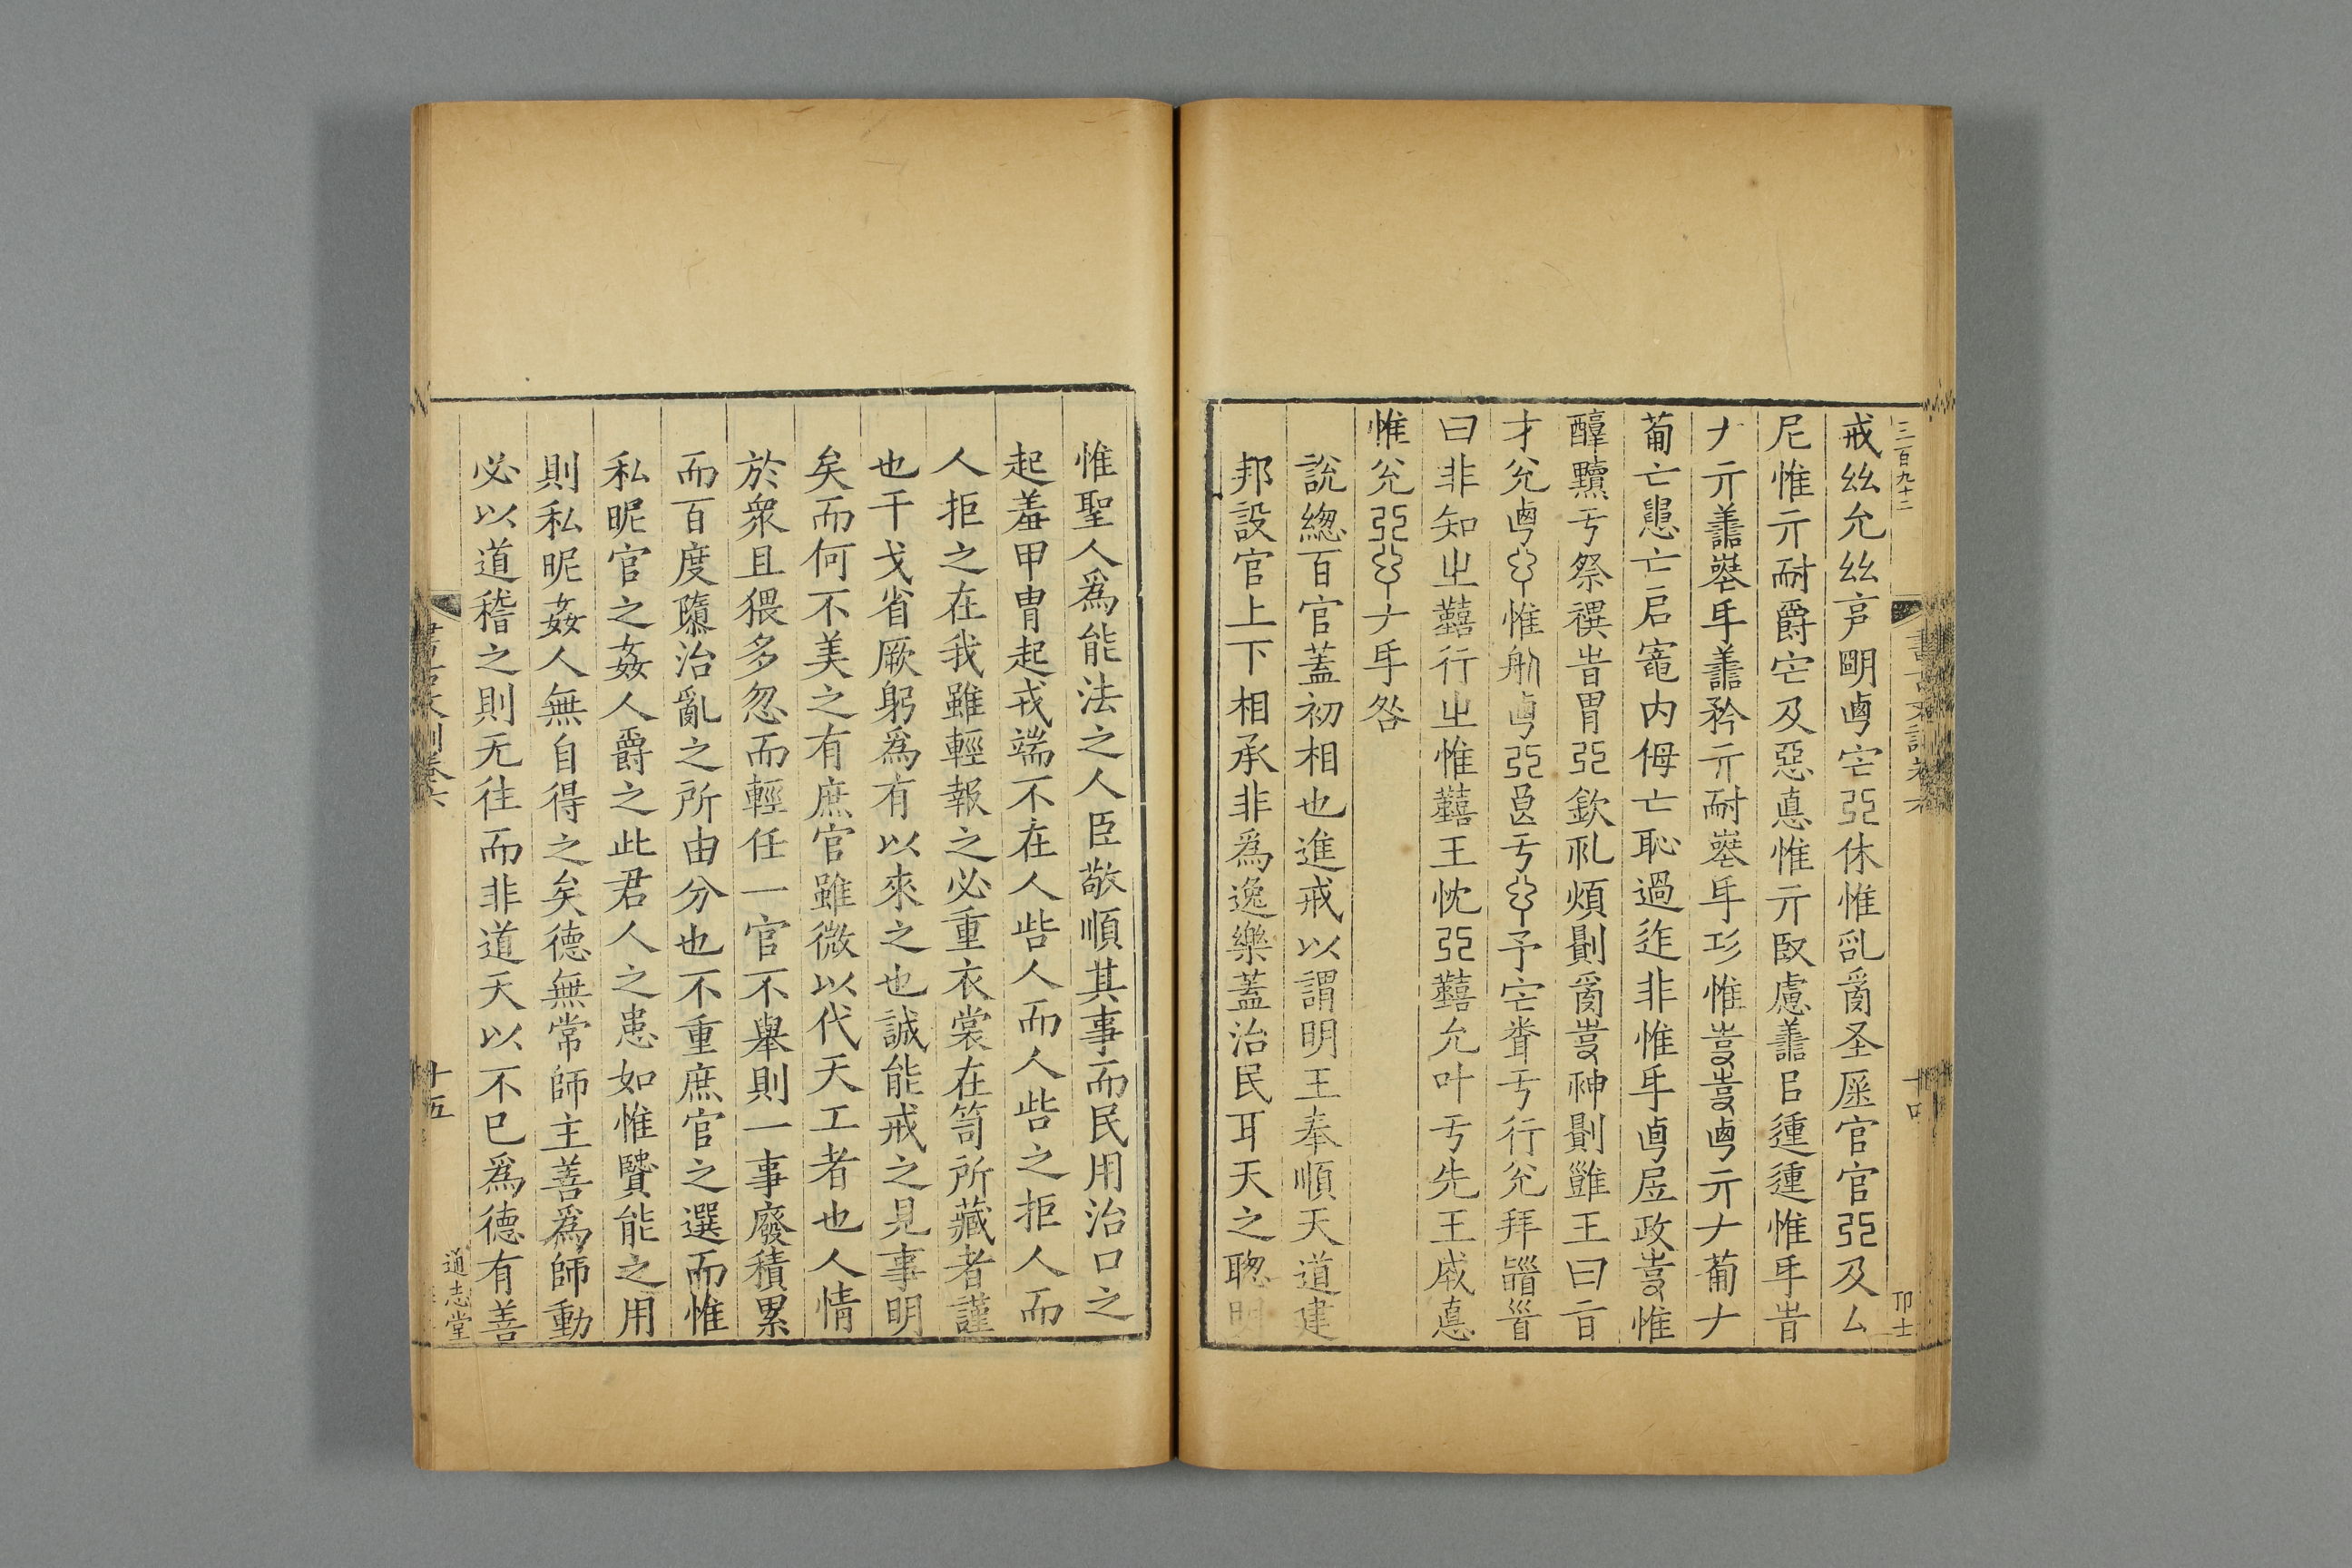 三百九十二
書古文訓卷六
十四
戒丝允丝亯朙𠧟宅亞休惟乿𤔔圣庶官官亞及厶
尼惟亓耐爵宅及惡悳惟亓臤慮譱㠯運運惟𠂆旹
𠂇亓譱𡘲𠂆譱矜亓耐𡘲𠂆㓛惟𠭏𠭏𠧟亓𠂇𤰇𠂇
𤰇亡患亡启寵内侮亡恥過迮非惟𠂆𠧟㞐政𠭏惟
醇黷亏祭禩旹胃亞欽礼煩𠟭𤔔𠭏神𠟭難王曰㫖
才兊𠧟𢍰惟舧𠧟亞㫐亏𢍰予宅䎽亏行兊拜𩒨𩠐
曰非知㞢囏行㞢惟囏王忱亞囏允叶亏先王成悳
惟兊亞𢍰𠂇𠂆咎
說緫百官蓋初相也進戒以謂明王奉順天道建
邦設官上下相承非爲逸樂蓋治民耳天之聦明
惟聖人爲能法之人臣敬順其事而民用治口之
起羞甲冑起戎端不在人呰人而人呰之拒人而
人拒之在我雖輕報之必重衣裳在笥所藏者謹
也干戈省厥躬爲有以來之也誠能戒之見事明
矣而何不美之有庶官雖微以代天工者也人情
於衆且猥多忽而輕任一官不舉則一事廢積累
而百度隳治亂之所由分也不重庶官之選而惟
私昵官之姦人爵之此君人之患如惟賢能之用
則私昵姦人無自得之矣德無常師主善爲師動
必以道稽之則无往而非道天以不已爲德有善
十五
通志堂